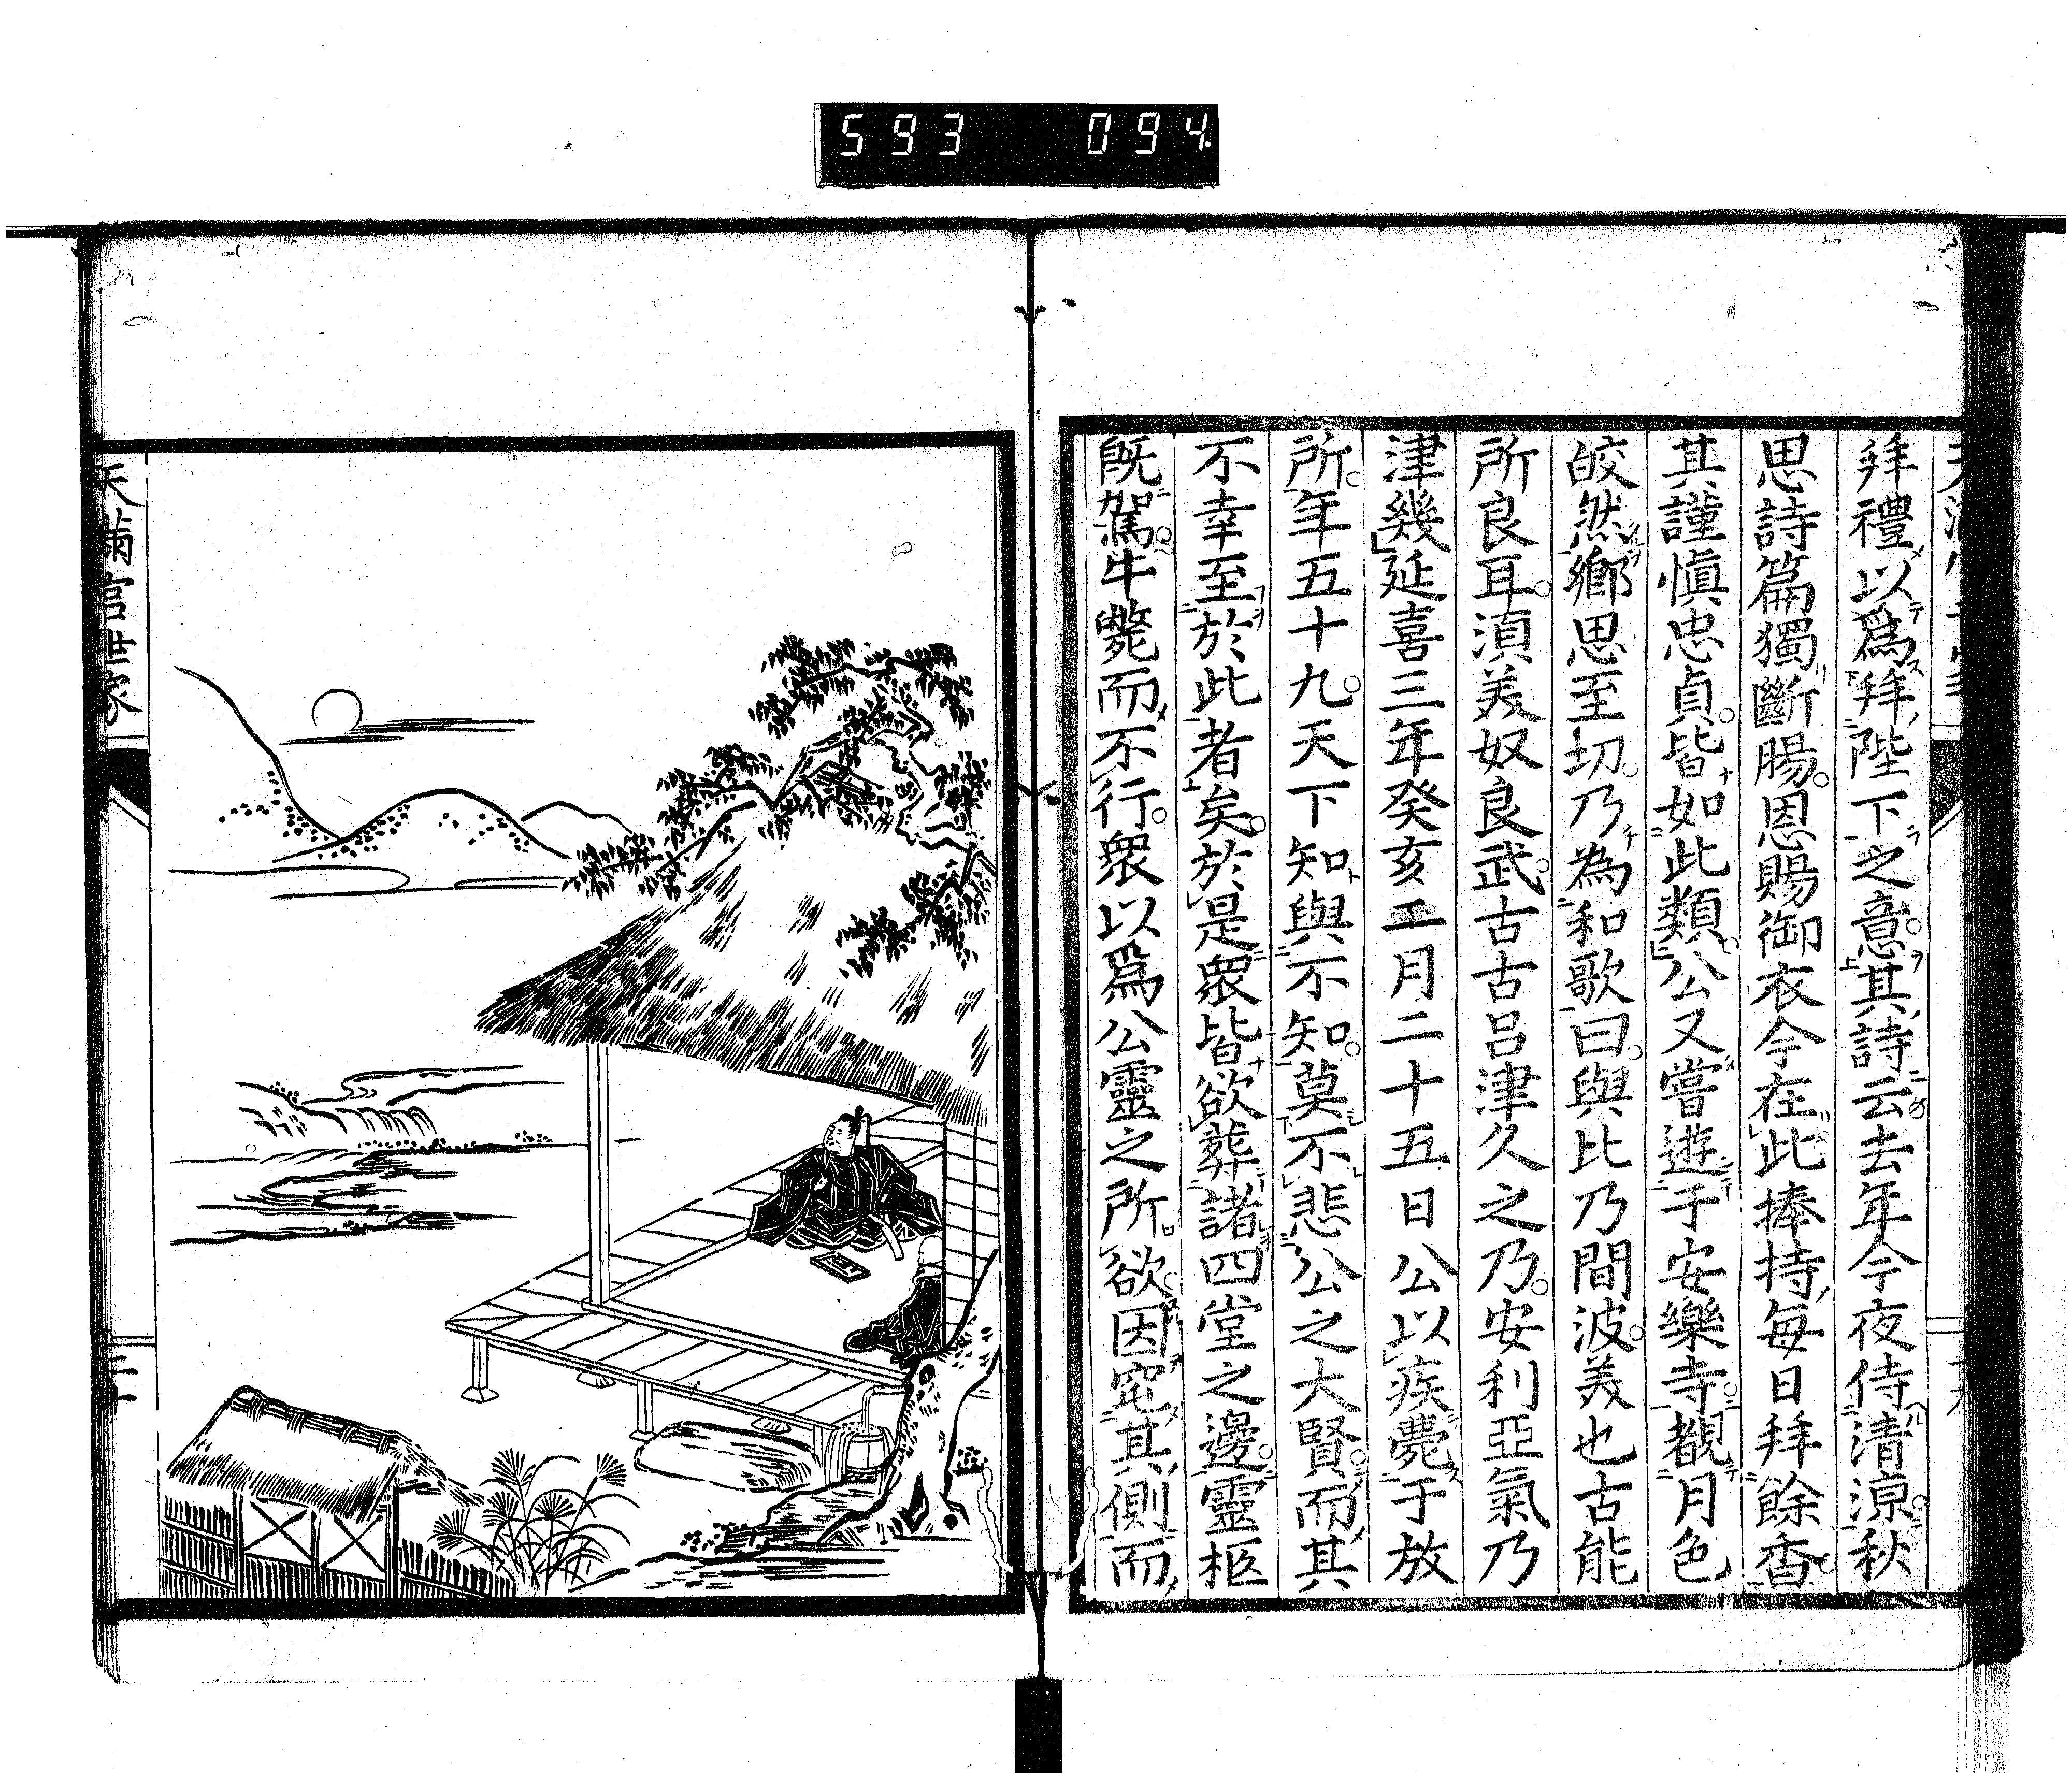 593 094
拜禮以爲拜陛下之意其詩云去年今夜侍清涼秋
思詩篇獨斷腸恩賜御衣今在此捧持每日拜餘香
其謹愼忠貞皆如此類公又嘗遊于安樂寺覩月色
皎然鄉思至切乃為和歌曰與比乃間波美也古能
所良耳湏美奴良武古古呂津久之乃安利亞氣乃
津幾延喜三年癸亥二月二十五日公以疾薨于放
所年五十九天下知與不知莫不悲公之大賢而其
不幸至於此者矣於是衆皆欲葬諸四堂之邊靈柩
既駕牛斃而不行衆以爲公靈之所欲因窆其側而
天滿宮世家
二十